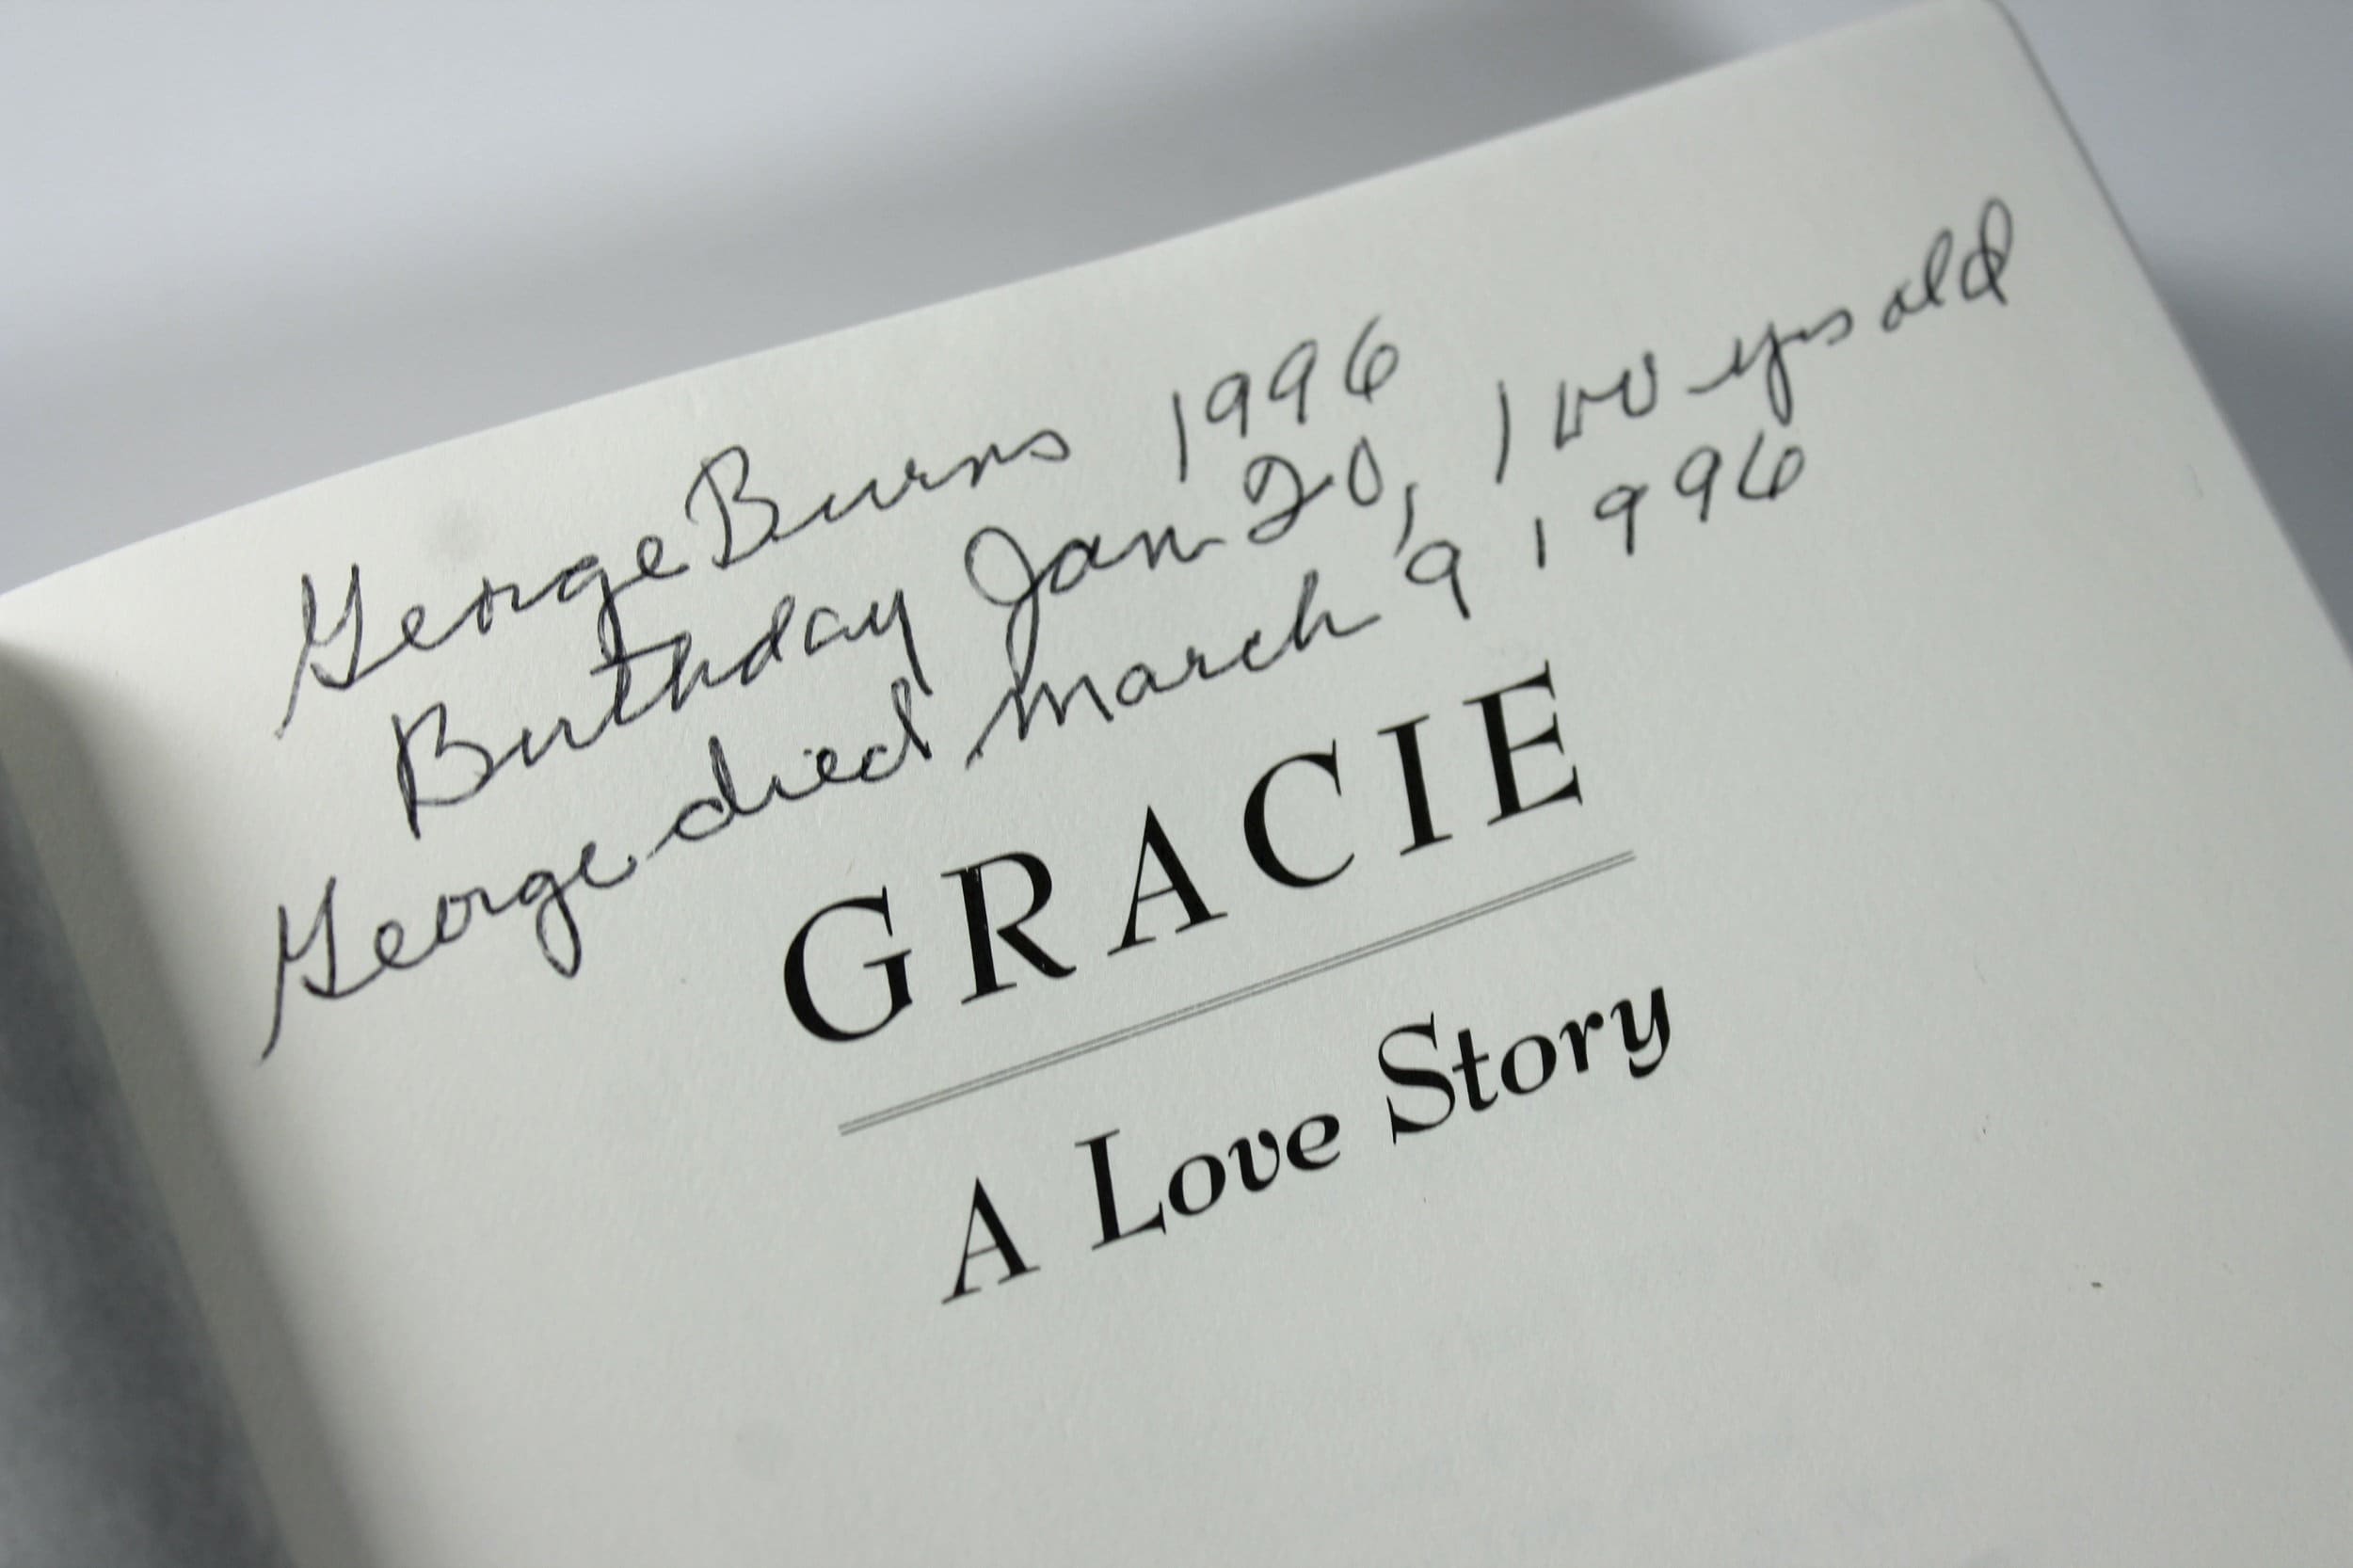 George Burns 1996
Birthday Jan 20, 100 yrs old
George died March 9 1996
GRACIE
A Love Story